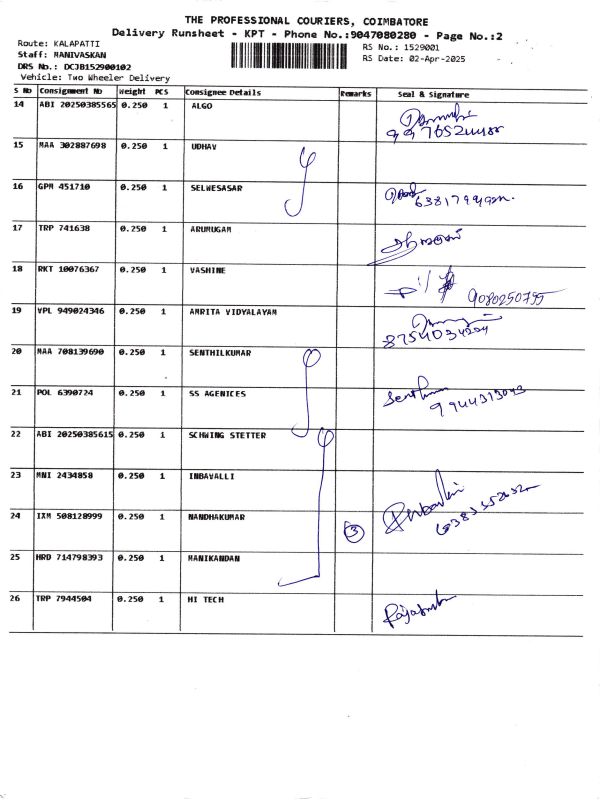 THE PROFESSIONAL COURIERS, COIMBATORE
Delivery Runsheet - KPT - Phone No.:9047080280 - Page No.:2
Route: KALAPATTI
RS No.: 1529001
Staff: MANIVASKAN
RS Date: 02-Apr-2025
DRS No.: DCJB152900102
Vehicle: Two Wheeler Delivery
S No Consignment No Weight PCS Consignee Details Remarks Seal & Signature
14 ABI 20250385565 0.250 1 ALGO
15 MAA 302887698 0.250 1 UDHAV
16 GPM 451710 0.250 1 SELWESASAR
17 TRP 741638 0.250 1 ARUMUGAM
18 RKT 10076367 0.250 1 VASHINE
9080250795
19 VPL 949024346 0.250 1 AMRITA VIDYALAYAM
8754034204
20 MAA 708139690 0.250 1 SENTHILKUMAR
21 POL 6390724 0.250 1 SS AGENICES
9944313043
22 ABI 20250385615 0.250 1 SCHWING STETTER
23 MNI 2434858 0.250 1 INBAVALLI
24 IXM 508128999 0.250 1 NANDHAKUMAR 3
25 HRD 714798393 0.250 1 MANIKANDAN
26 TRP 7944504 0.250 1 HI TECH